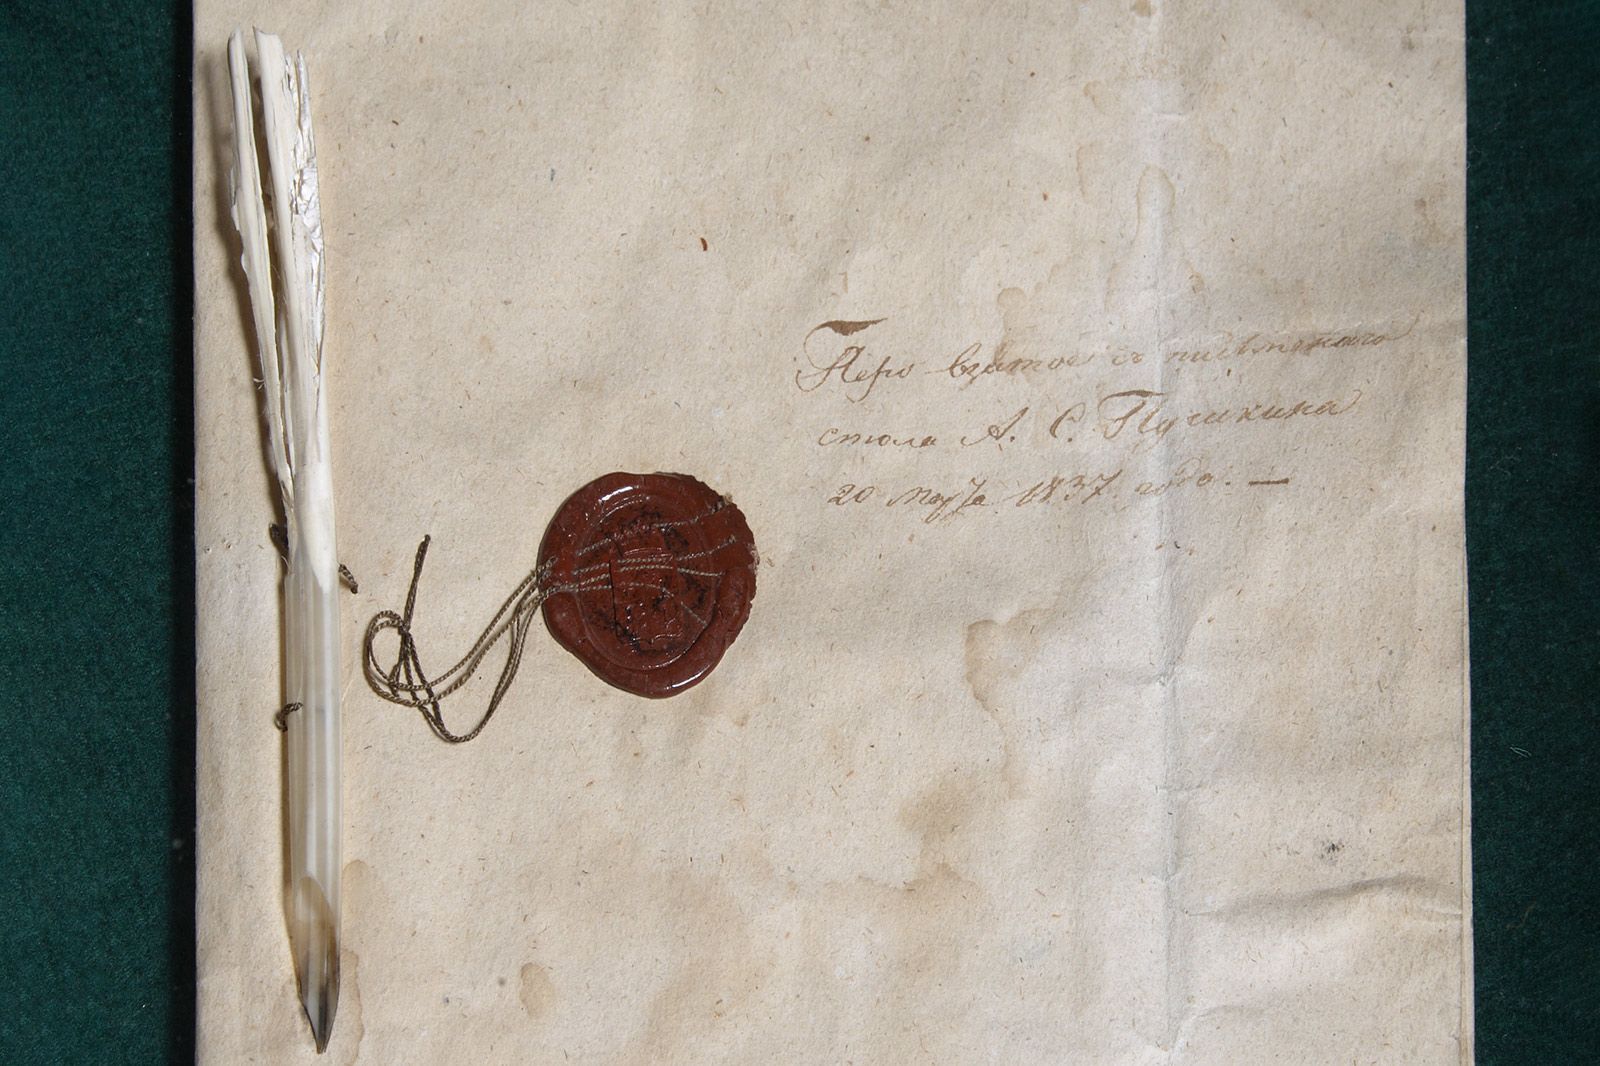 Перо взятое съ письменнаго
стола А. С. Пушкина
20 марта 1837 года. —